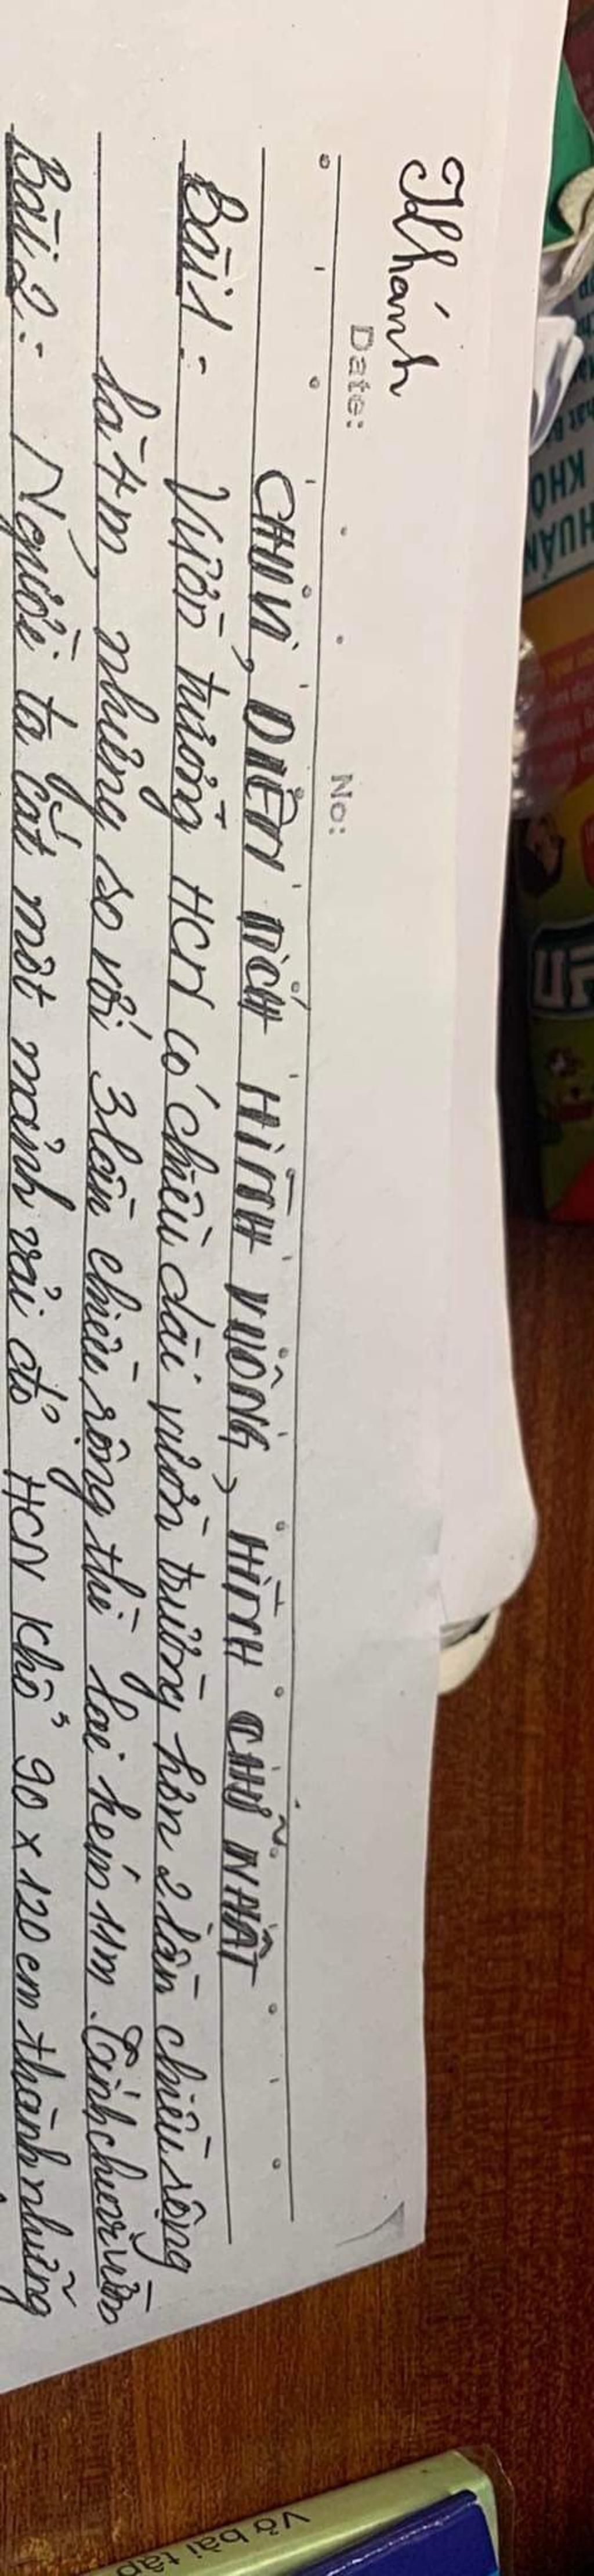 Khánh
Date: No:
CHU VI, DIỆN TÍCH HÌNH VUÔNG, HÌNH CHỮ NHẬT
Bài 1: Vườn trường HCN có chiều dài vườn trường hơn 2 lần chiều rộng
là 4m, nhưng so với 3 lần chiều rộng thì lại kém 11m. Tính chu vi vườn
Bài 2: Người ta cắt một mảnh vải đỏ HCN khổ 90 x 120 cm thành những
HUẨN
KHÔ
Vở bài tập